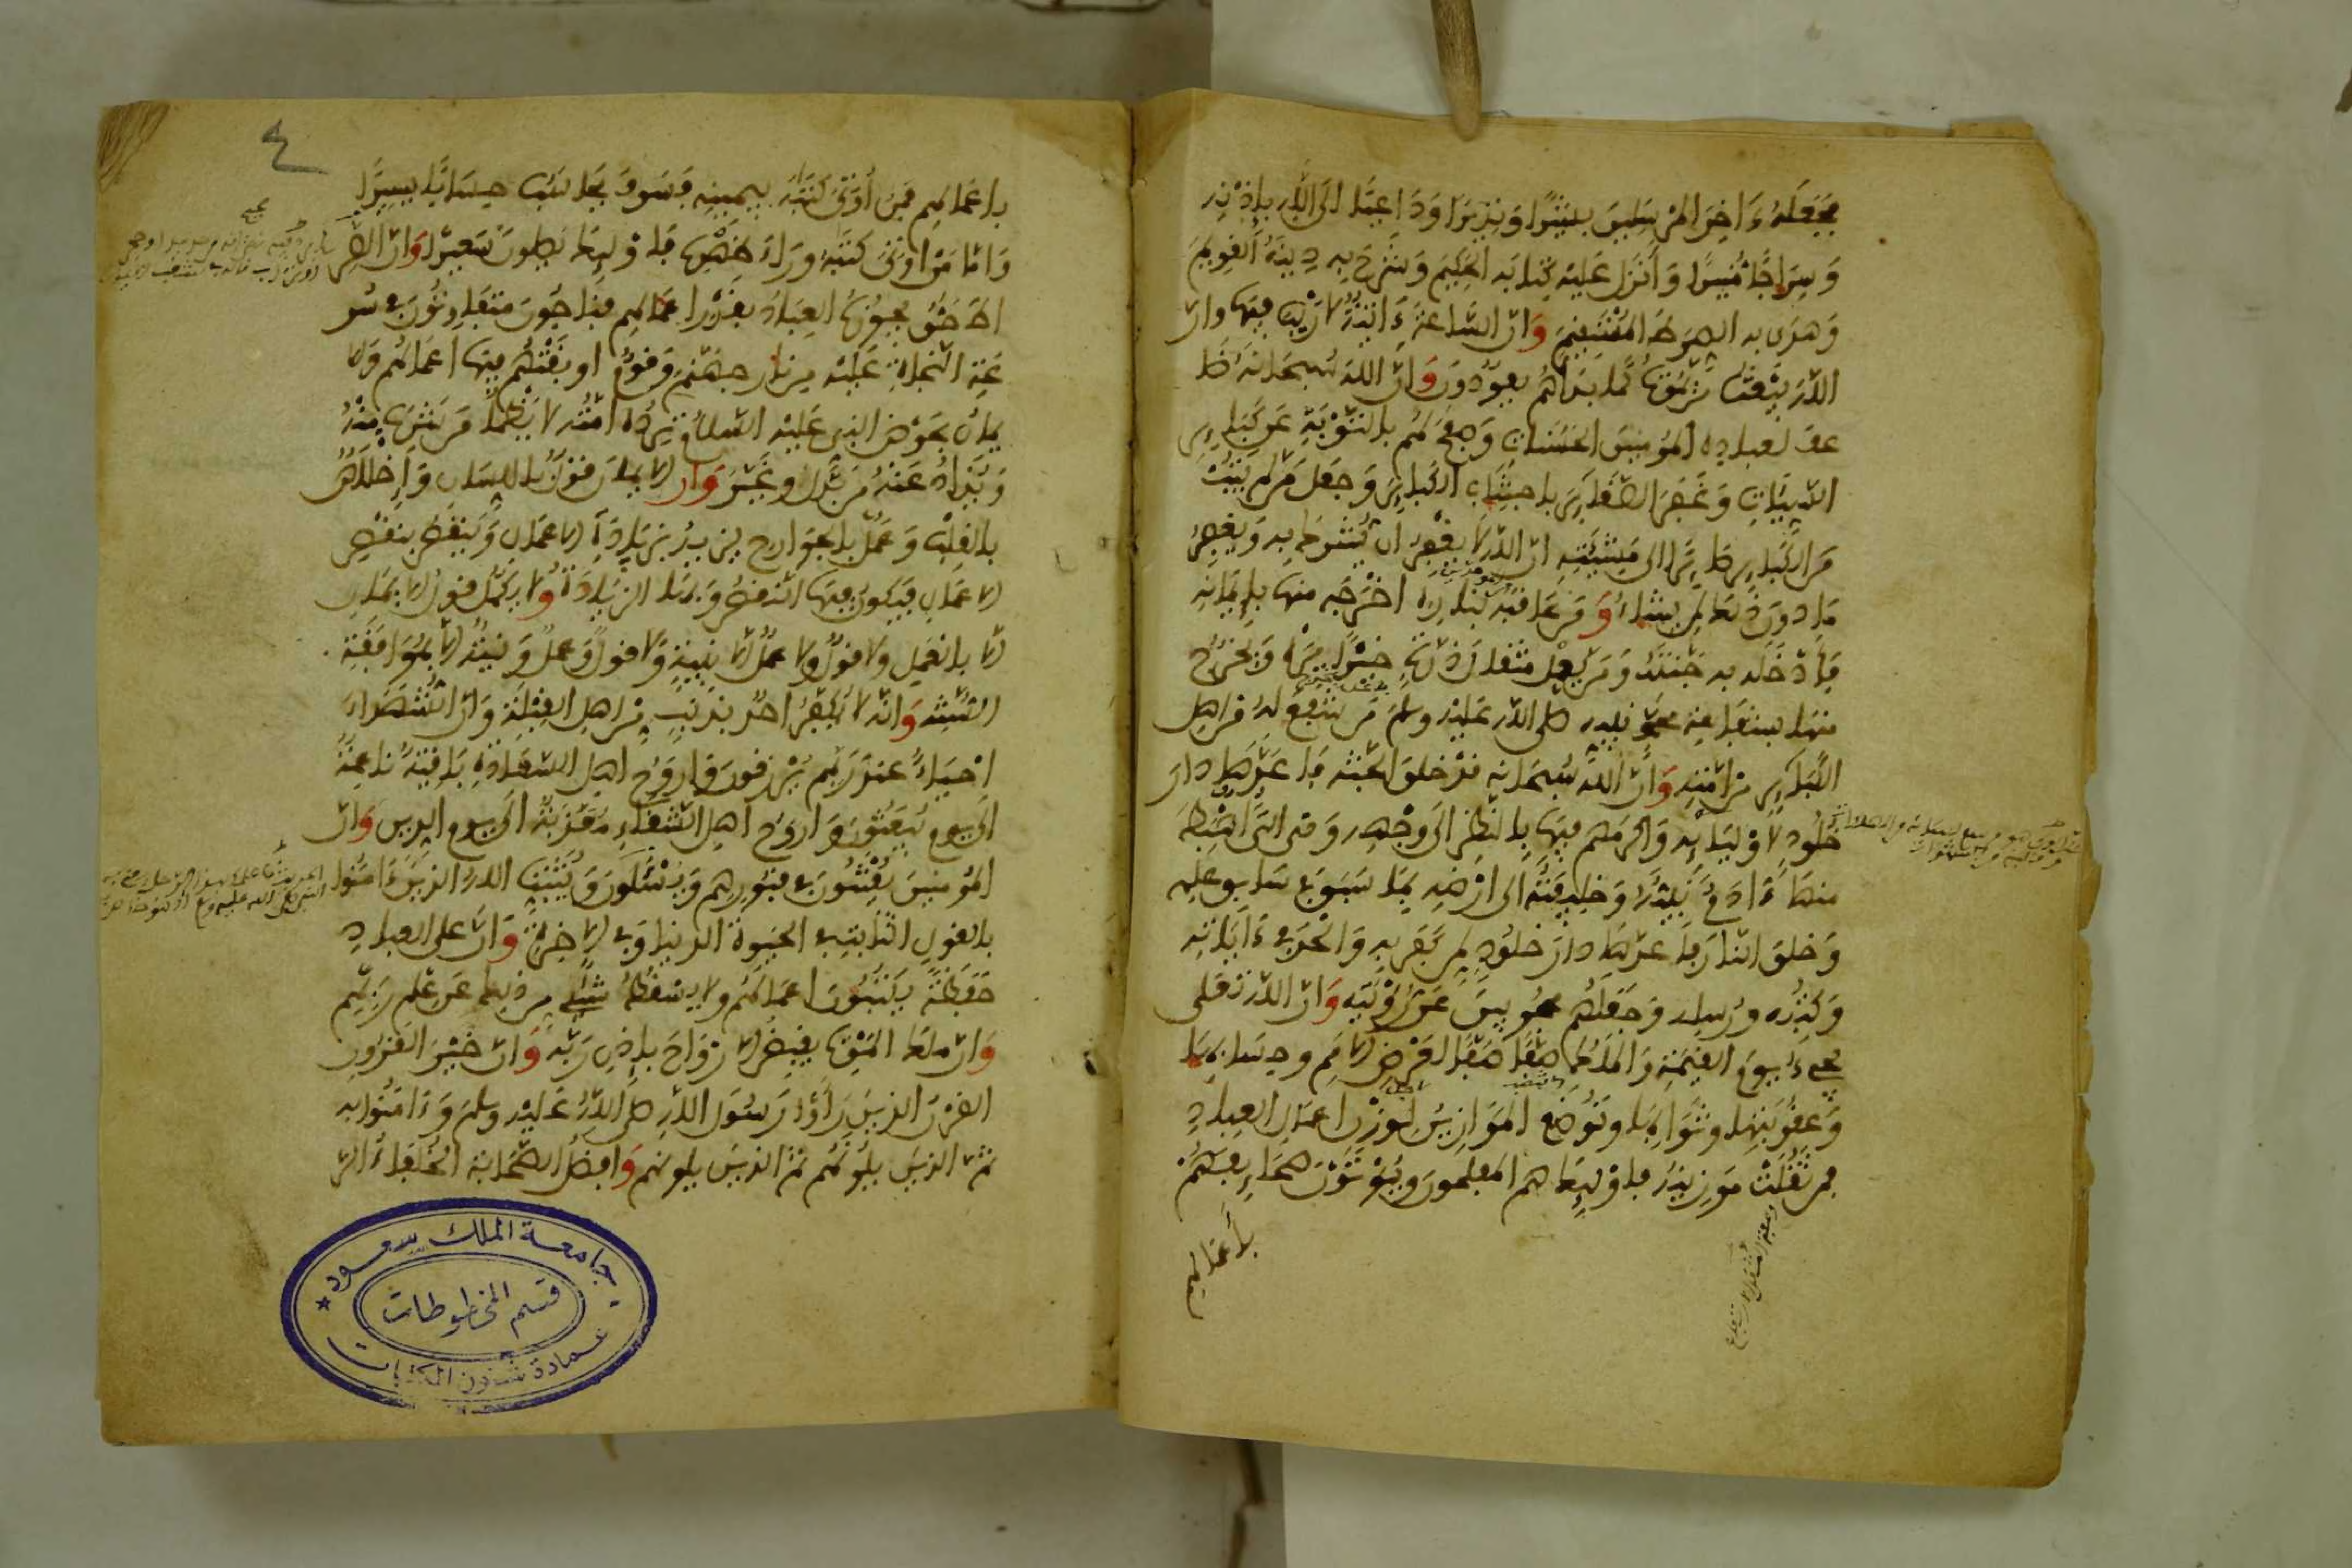 فجعله ءاخر المرسلين بشيرا ونذيرا وداعيا الى الله بإذنه
وسراجا منيرا وأنزل عليه كتابه الحكيم وشرح به دينه القويم
وهدى به الصرط المستقيم وان الساعة ءاتية لا ريب فيها وان
الله يبعث من يموت كما بدأهم يعودون وان الله سبحانه ضا
عف لعباده المومنين الحسنات وصفح لهم بالتوبة عن كبائر
السيئات وغفر الصغائر باجتناب الكبائر وجعل من لم يتب
من الكبائر صائرا الى مشيئته ان الله لا يغفر ان يشرك به ويغفر
ما دون ذلك لمن يشاء ومن عاقبه بناره اخرجه منها بإيمانه
فأدخله به جنته ومن يعمل مثقال ذرة خيرا يره ويخرج
منها بشفاعة محمد نبيه صلى الله عليه وسلم من شفع له من اهل
الكبائر من امته وان الله سبحانه قد خلق الجنة فاعدها دار
خلود لاوليائه واكرمهم فيها بالنظر الى وجهه وهي التي اهبط
منها ءادم نبيه وخليفته الى ارضه بما سبق في سابق علمه
وخلق النار فاعدها دار خلود لمن كفر به والحد في ءاياته
وكتبه ورسله وجعلهم محجوبين عن رؤيته وان الله تعلى
يجيء يوم القيمة والملك صفا صفا لعرض الامم وحسابها
وعقوبتها وثوابها وتوضع الموازين لوزن اعمال العباد
فمن ثقلت موزينه فاولئك هم المفلحون ويوتون صحائفهم
بأعمالهم
٤
باعمالهم فمن أوتي كتبه بيمينه فسوف يحاسب حسابا يسيرا
واما من اوتي كتبه وراء ظهره فاولئك يصلون سعيرا وان الصر
اط حق يجوزه العباد بقدر اعمالهم فناجون متفاوتون في سر
عة النجاة عليه من نار جهنم وقوم اوبقتهم فيها اعمالهم والا
يمان بحوض النبي عليه السلام ترده امته لا يظمأ من شرب منه
ويذاد عنه من بدل وغير وان الايمان قول باللسان وإخلاص
بالقلب وعمل بالجوارح يزيد بزيادة الاعمال وينقص بنقص
الاعمال فيكون فيها النقص وبها الزيادة ولا يكمل قول الايمان
الا بالعمل ولا قول ولا عمل الا بنية ولا قول وعمل ونية الا بموافقة
السنة وانه لا يكفر احد بذنب من اهل القبلة وان الشهداء
احياء عند ربهم يرزقون وارواح اهل السعادة باقية ناعمة
الى يوم يبعثون وارواح اهل الشقاء معذبة الى يوم الدين وان
المومنين يفتنون في قبورهم ويسئلون ويثبت الله الذين ءامنوا
بالقول الثابت في الحيوة الدنيا وفي الاخرة وان على العباد
حفظة يكتبون اعمالهم ولا يسقط شيء من ذلك عن علم ربهم
وان ملك الموت يقبض الارواح بإذن ربه وان خير القرون
القرن الذين رأوا رسول الله صلى الله عليه وسلم وءامنوا به
ثم الذين يلونهم ثم الذين يلونهم وافضل الصحابة الخلفاء الر
جامعة الملك سعود
قسم المخطوطات
عمادة شئون المكتبات